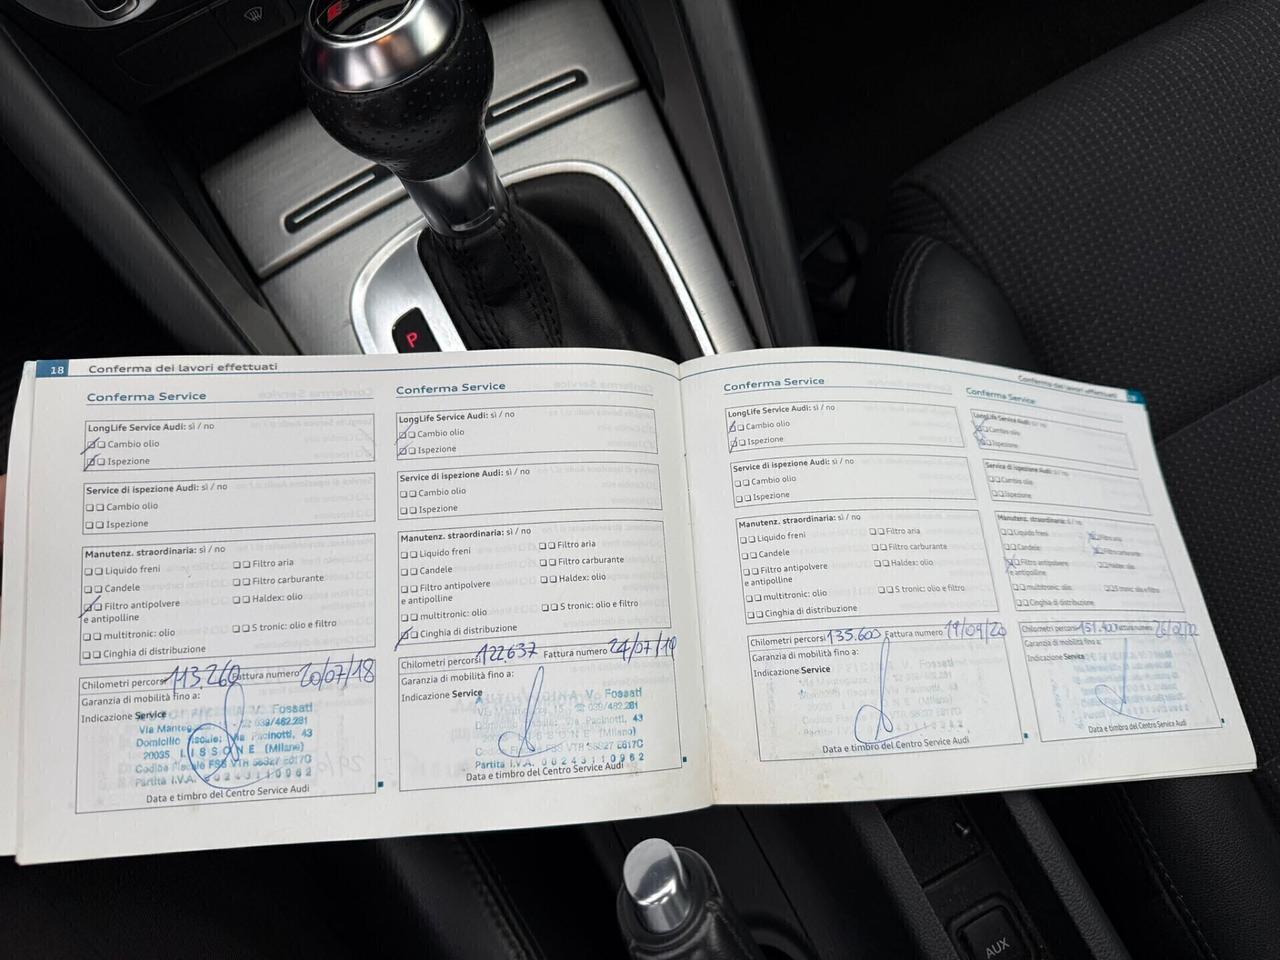 P
18 Conferma dei lavori effettuati
Conferma Service
LongLife Service Audi: sì / no
Cambio olio
Ispezione
Service di ispezione Audi: sì / no
Cambio olio
Ispezione
Manutenz. straordinaria: sì / no
Liquido freni
Filtro aria
Candele
Filtro carburante
Filtro antipolvere
e antipolline
Haldex: olio
multitronic: olio
S tronic: olio e filtro
Cinghia di distribuzione
Chilometri percorsi 113.260 Fattura numero 20/07/18
Garanzia di mobilità fino a:
Indicazione Service
V. Fossati
Via Manteg ☎ 039/482.281
Domicilio Fiscale: Via Pacinotti, 43
20035 LISSONE (Milano)
Codice Fiscale FSS VTH 58S27 E617C
Partita I.V.A. 00243110962
Data e timbro del Centro Service Audi
Conferma Service
LongLife Service Audi: sì / no
Cambio olio
Ispezione
Service di ispezione Audi: sì / no
Cambio olio
Ispezione
Manutenz. straordinaria: sì / no
Liquido freni
Filtro aria
Candele
Filtro carburante
Filtro antipolvere
e antipolline
Haldex: olio
multitronic: olio
S tronic: olio e filtro
Cinghia di distribuzione
Chilometri percorsi 122.637 Fattura numero 24/07/19
Garanzia di mobilità fino a:
Indicazione Service
V. Fossati
☎ 039/482.281
Via Pacinotti, 43
LISSONE (Milano)
Fiscale FSS VTH 58S27 E617C
Partita I.V.A. 00243110962
Data e timbro del Centro Service Audi
Conferma dei lavori effettuati 19
Conferma Service
LongLife Service Audi: sì / no
Cambio olio
Ispezione
Service di ispezione Audi: sì / no
Cambio olio
Ispezione
Manutenz. straordinaria: sì / no
Liquido freni
Filtro aria
Candele
Filtro carburante
Filtro antipolvere
e antipolline
Haldex: olio
multitronic: olio
S tronic: olio e filtro
Cinghia di distribuzione
Chilometri percorsi 135.600 Fattura numero 19/09/20
Garanzia di mobilità fino a:
Indicazione Service
V. Fossati
Data e timbro del Centro Service Audi
Conferma Service
LongLife Service Audi: sì / no
Cambio olio
Ispezione
Service di ispezione Audi: sì / no
Cambio olio
Ispezione
Manutenz. straordinaria: sì / no
Liquido freni
Filtro aria
Candele
Filtro carburante
Filtro antipolvere
e antipolline
Haldex: olio
multitronic: olio
S tronic: olio e filtro
Cinghia di distribuzione
Chilometri percorsi 151.400 Fattura numero
Garanzia di mobilità fino a:
Indicazione Service
Data e timbro del Centro Service Audi
AUX